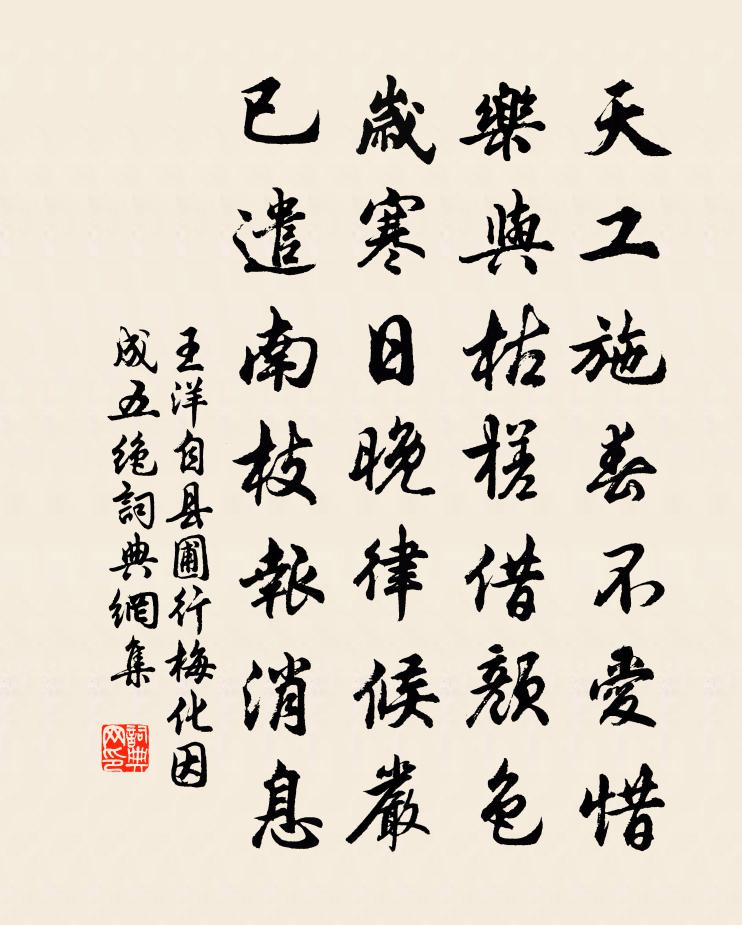 天工施春不愛惜
樂與枯槎借顏色
歲寒日晚律候嚴
已遣南枝報消息
王洋自县圃行梅化因
成五绝詞典網集
詞典網印